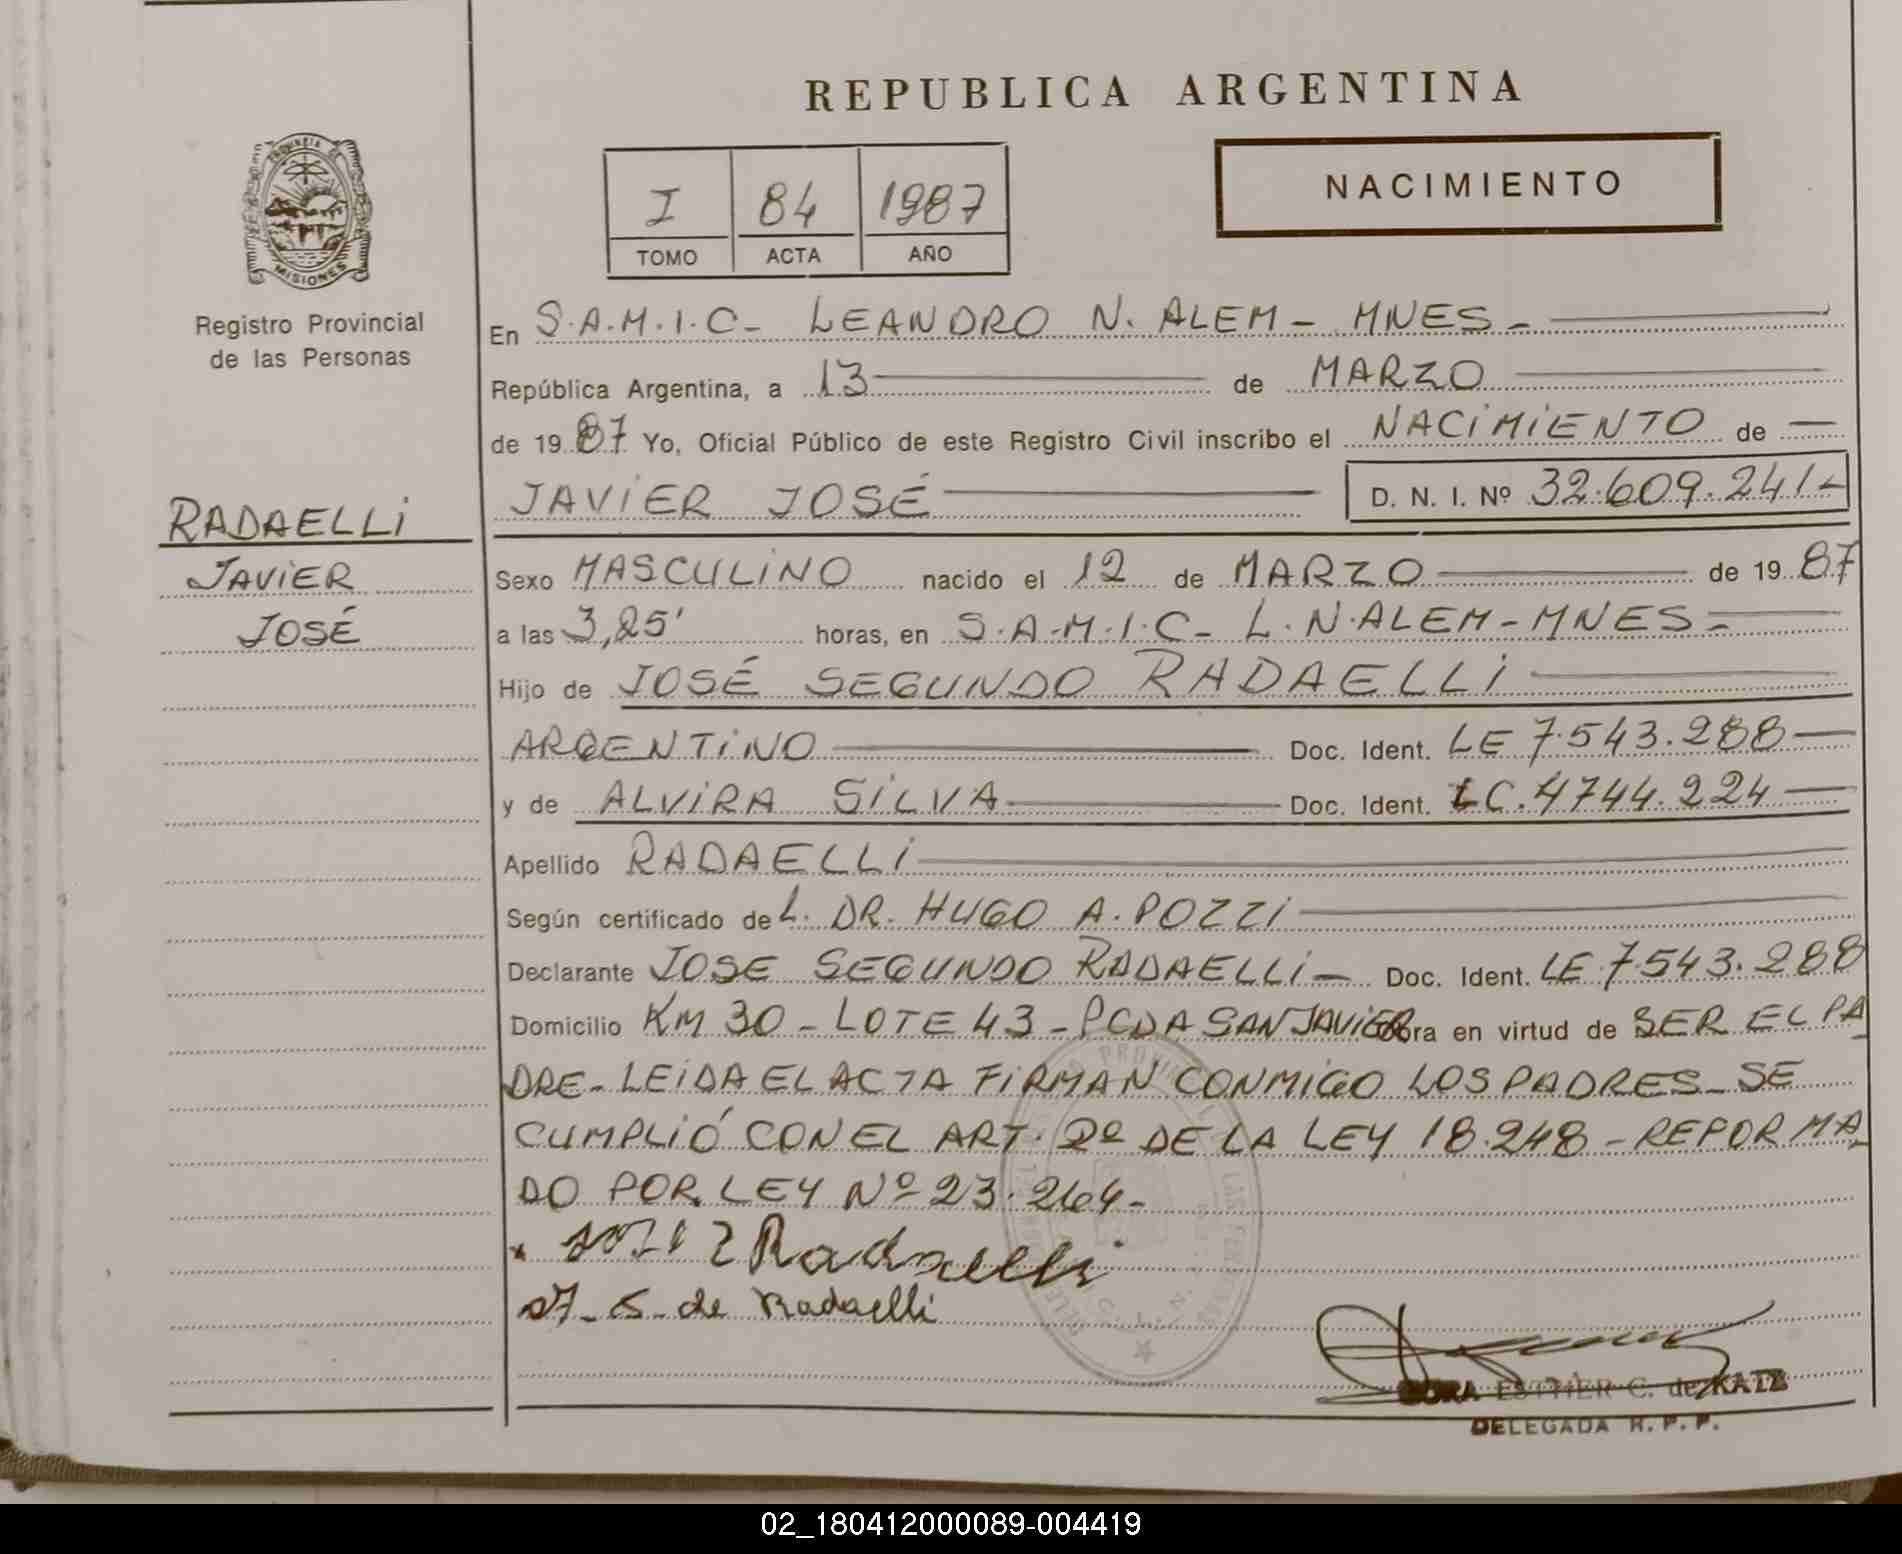 REPUBLICA ARGENTINA
NACIMIENTO
I 84 1987
TOMO ACTA AÑO
PROVINCIA DE
MISIONES
Registro Provincial
de las Personas
RADAELLI
JAVIER
JOSÉ
En S.A.M.I.C- LEANDRO N. ALEM - MNES -
República Argentina, a 13 de MARZO
de 1987 Yo, Oficial Público de este Registro Civil inscribo el NACIMIENTO de
JAVIER JOSÉ D. N. I. Nº 32.609.241-
Sexo MASCULINO nacido el 12 de MARZO de 1987
a las 3,25' horas, en S.A.M.I.C- L.N.ALEM-MNES-
Hijo de JOSÉ SEGUNDO RADAELLI
ARGENTINO Doc. Ident. LE 7.543.288
y de ALVIRA SILVA Doc. Ident. LC.4744.224
Apellido RADAELLI
Según certificado de L. DR. HUGO A. POZZI
Declarante JOSE SEGUNDO RADAELLI- Doc. Ident. LE.7.543.288
Domicilio KM 30 - LOTE 43 - PCDA SAN JAVIER obra en virtud de SER EL PA
DRE- LEIDA EL ACTA FIRMAN CONMIGO LOS PADRES- SE
CUMPLIÓ CON EL ART. 2º DE LA LEY 18.248 - REFORMA
DO POR LEY Nº 23.264-
Radaelli
de Radaelli
DORA ESTHER C. de KATZ
DELEGADA R. P. P.
02_180412000089-004419